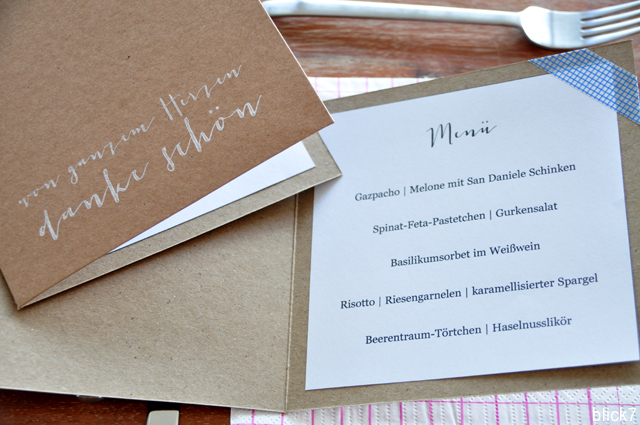 von ganzem Herzen
danke schön
Menü
Gazpacho | Melone mit San Daniele Schinken
Spinat-Feta-Pastetchen | Gurkensalat
Basilikumsorbet im Weißwein
Risotto | Riesengarnelen | karamellisierter Spargel
Beerentraum-Törtchen | Haselnusslikör
blick7